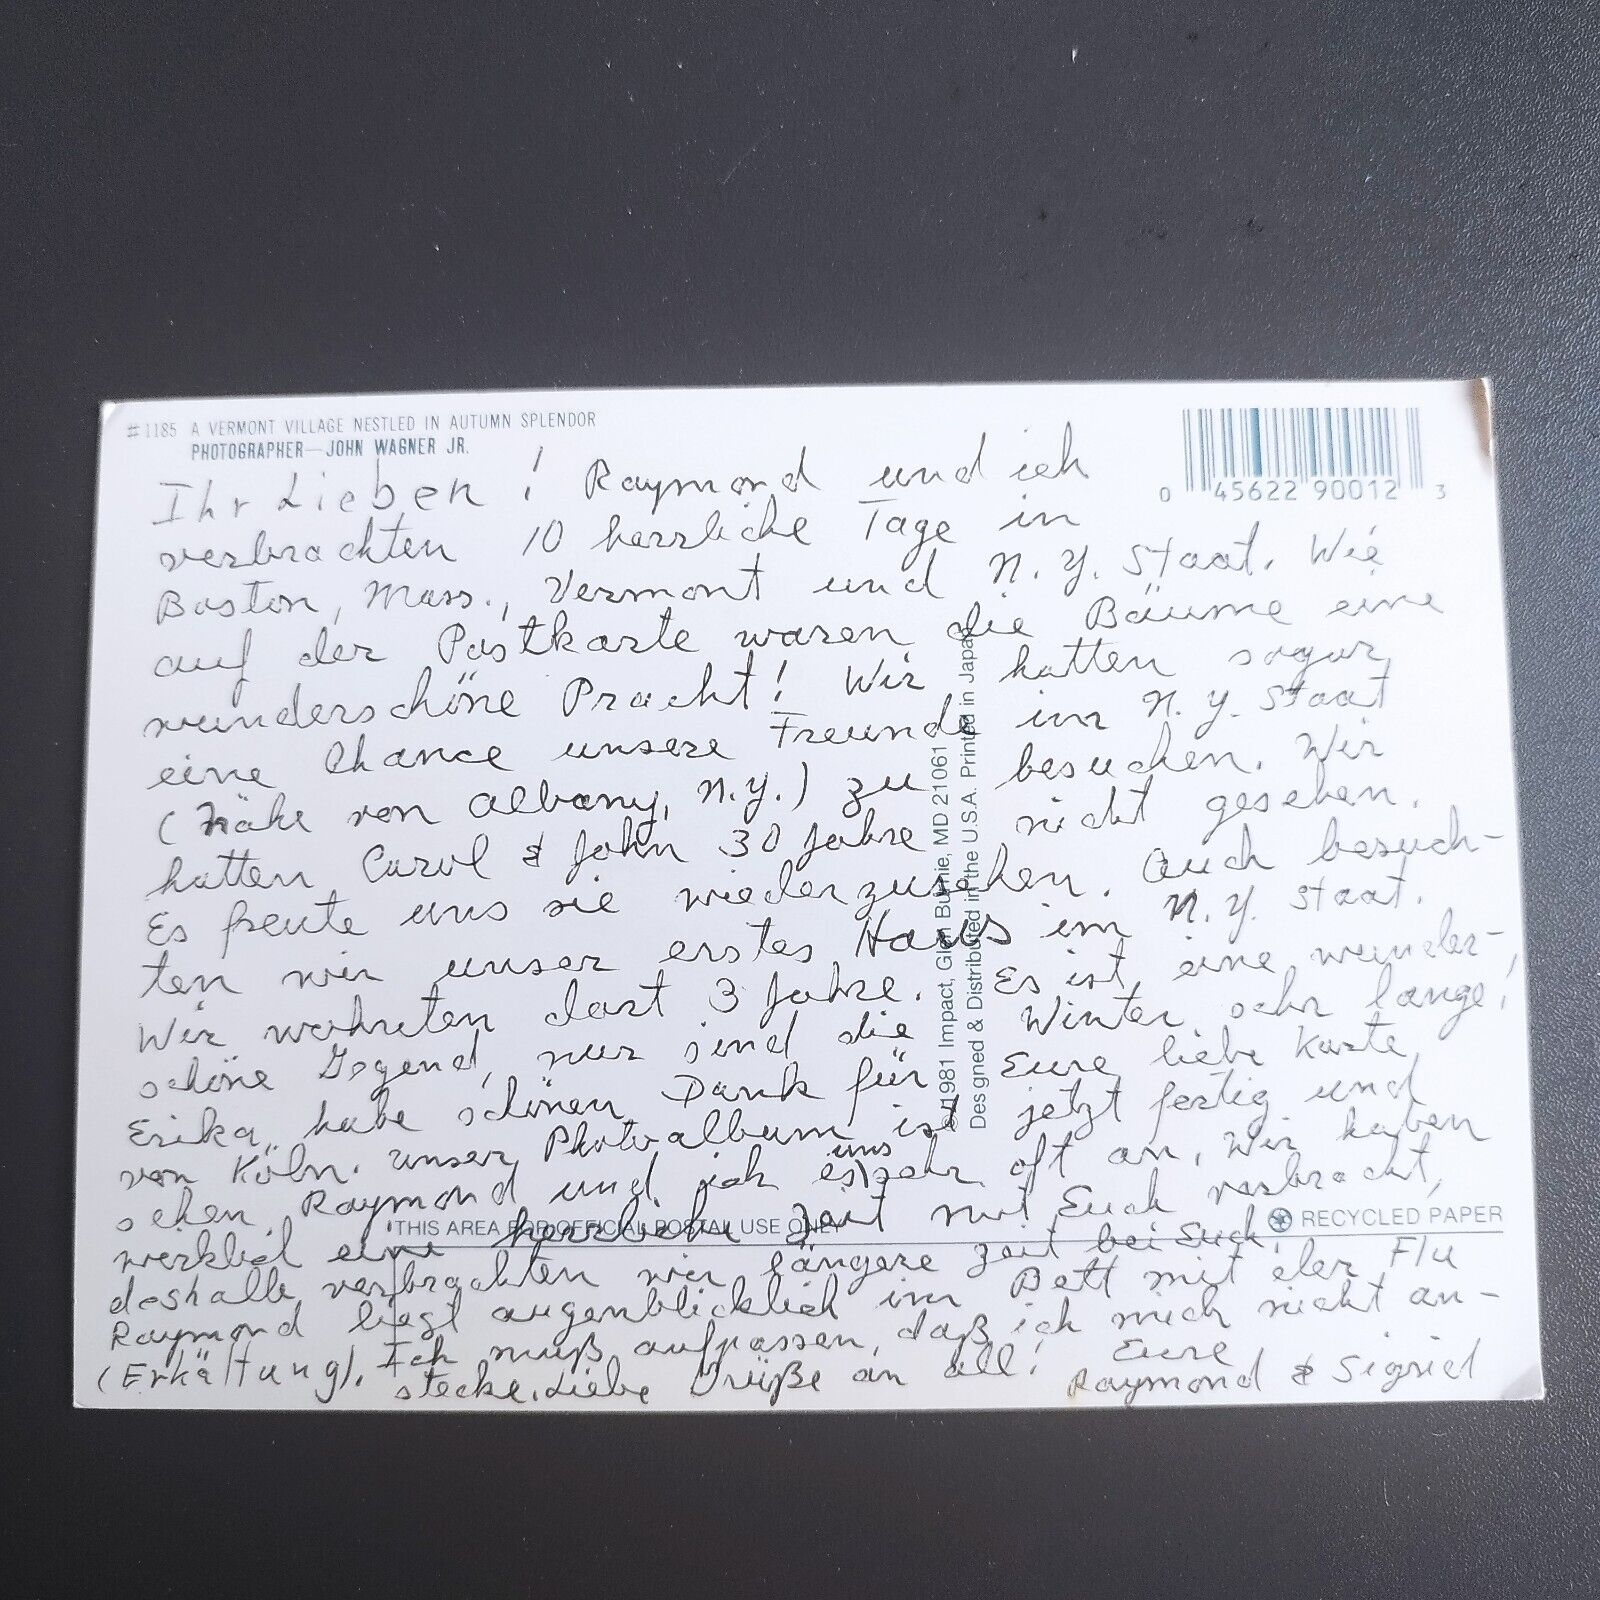 #1185 A VERMONT VILLAGE NESTLED IN AUTUMN SPLENDOR
PHOTOGRAPHER—JOHN WAGNER JR.
0 45622 90012 3
Ihr Lieben! Raymond und ich
verbrachten 10 herrliche Tage in
Boston, Mass., Vermont und N.Y. Staat. Wie
auf der Postkarte waren die Bäume eine
wunderschöne Pracht! Wir hatten sogar
eine Chance unsere Freunde im N.Y. Staat
(Nähe von Albany, N.Y.) zu besuchen. Wir
hatten Carol & John 30 Jahre nicht gesehen.
Es freute uns sie wiederzusehen. Auch besuch-
ten wir unser erstes Haus im N.Y. Staat.
Wir wohnten dort 3 Jahre. Es ist eine wunder-
schöne Gegend, nur sind die Winter sehr lange!
Erika, habe schönen Dank für Eure liebe Karte
von Köln. Unser Photoalbum ist jetzt fertig und
sehen Raymond und ich es uns sehr oft an. Wir haben
wirklich eine herrliche Zeit mit Euch verbracht,
deshalb verbrachten wir längere Zeit bei Euch.
Raymond liegt augenblicklich im Bett mit der Flu
(Erkältung). Ich muß aufpassen, daß ich mich nicht an-
stecke. Liebe Grüße an all! Eure
Raymond & Sigrid
©1981 Impact, Glen Burnie, MD 21061
Designed & Distributed in the U.S.A. Printed in Japan
THIS AREA FOR OFFICIAL POSTAL USE ONLY
RECYCLED PAPER